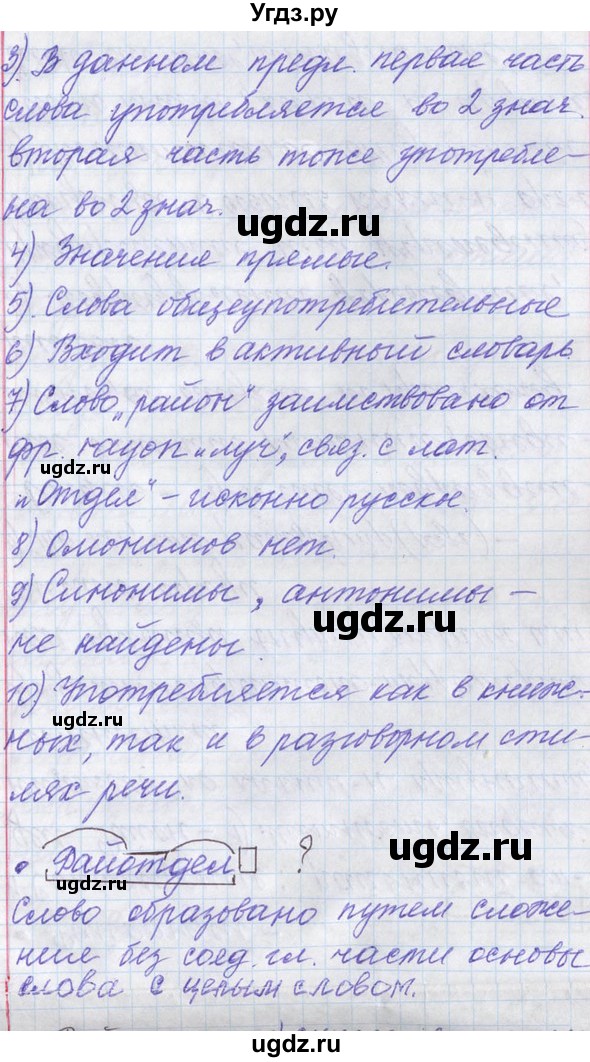 Угдз.ру
3). В данном предл. первая часть
слова употребляется во 2 знач.
вторая часть тоже употребле-
на во 2 знач.
ugdz.ru
4) Значения прямые.
ugdz.ru
5). Слова общеупотребительные
6) Входит в активный словарь
7) Слово „район" заимствовано от
фр. rayon „луч", связ. с лат.
ugdz.ru
„Отдел" - исконно русское.
8) Омонимов нет.
ugdz.ru
9) Синонимы, антонимы -
не найдены
10) Употребляется как в книж-
ugdz.ru
ных, так и в разговорном сти-
лях речи.
ugdz.ru
• Райотдел ?
ugdz.ru
Слово образовано путем сложе-
ния без соед. гл. части основы
слова с целым словом.
ugdz.ru